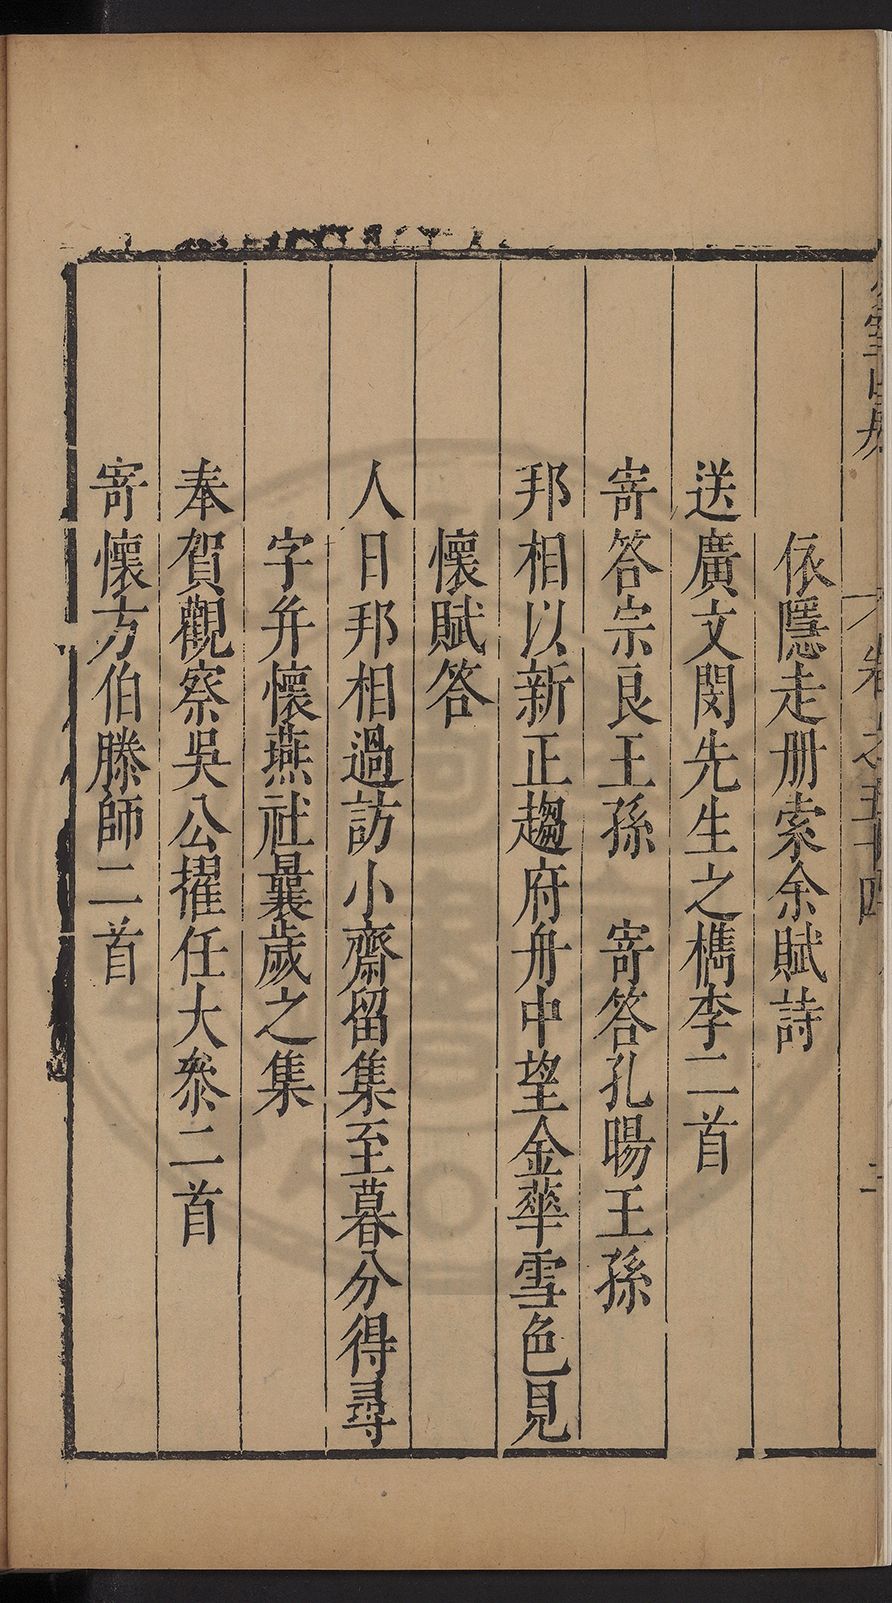 卷之五十四
依隱走册索余賦詩
送廣文閔先生之檇李二首
寄答宗良王孫　寄答孔暘王孫
邦相以新正趨府舟中望金華雪色見
懷賦答
人日邦相過訪小齋留集至暮分得尋
字并懷燕社曩歲之集
奉賀觀察吳公擢任大叅二首
寄懷方伯滕師二首